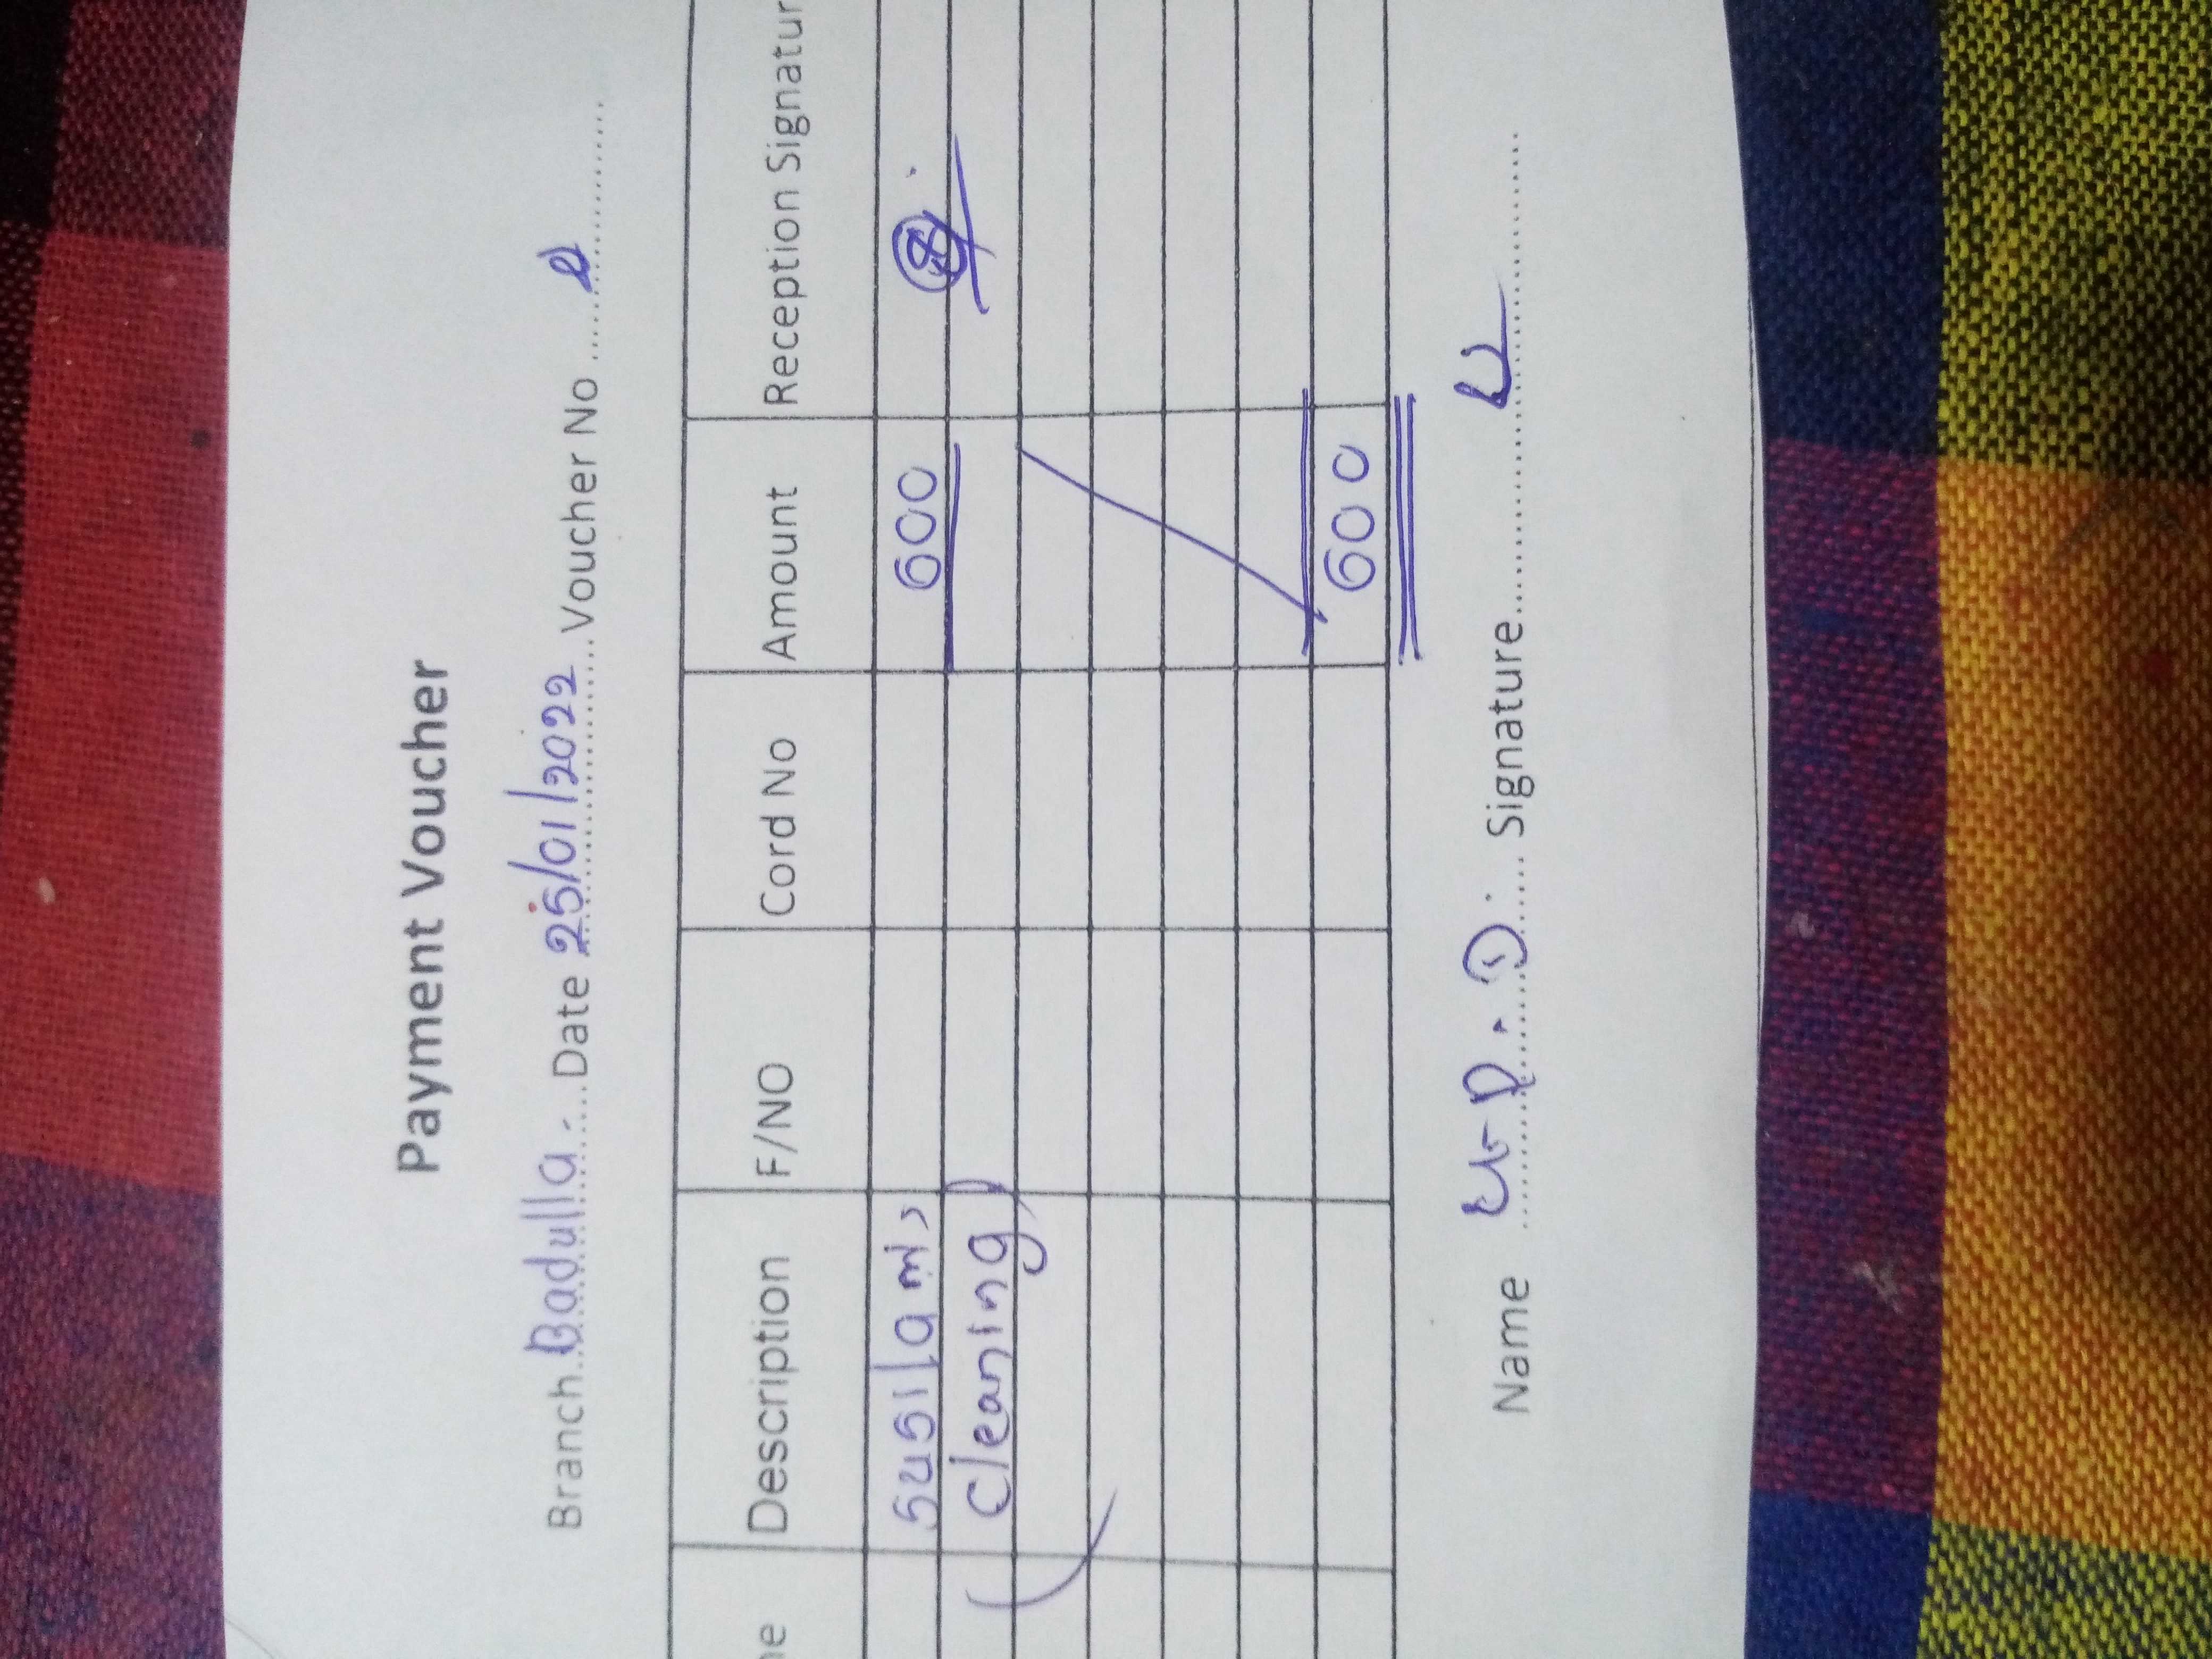 Payment Voucher
Branch Badulla Date 25/01/2022 Voucher No
Description F/NO Cord No Amount Reception Signatur
susila 600
(Cleaning)
600
Name Signature